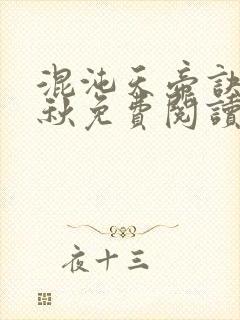 混沌天帝訣
秋免費閱讀
夜十三